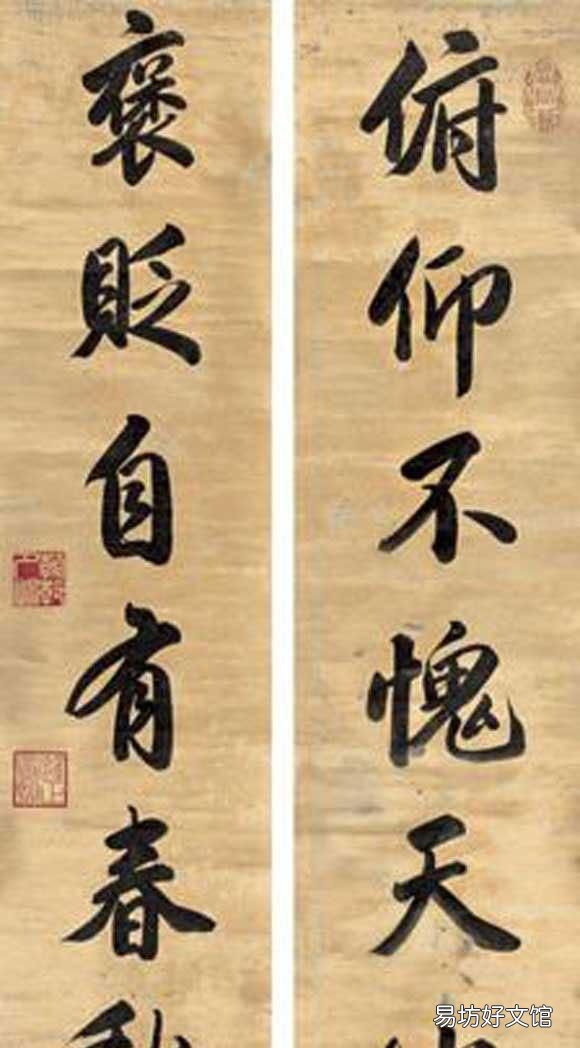 俯仰不愧天
褒貶自有春
易坊好文馆